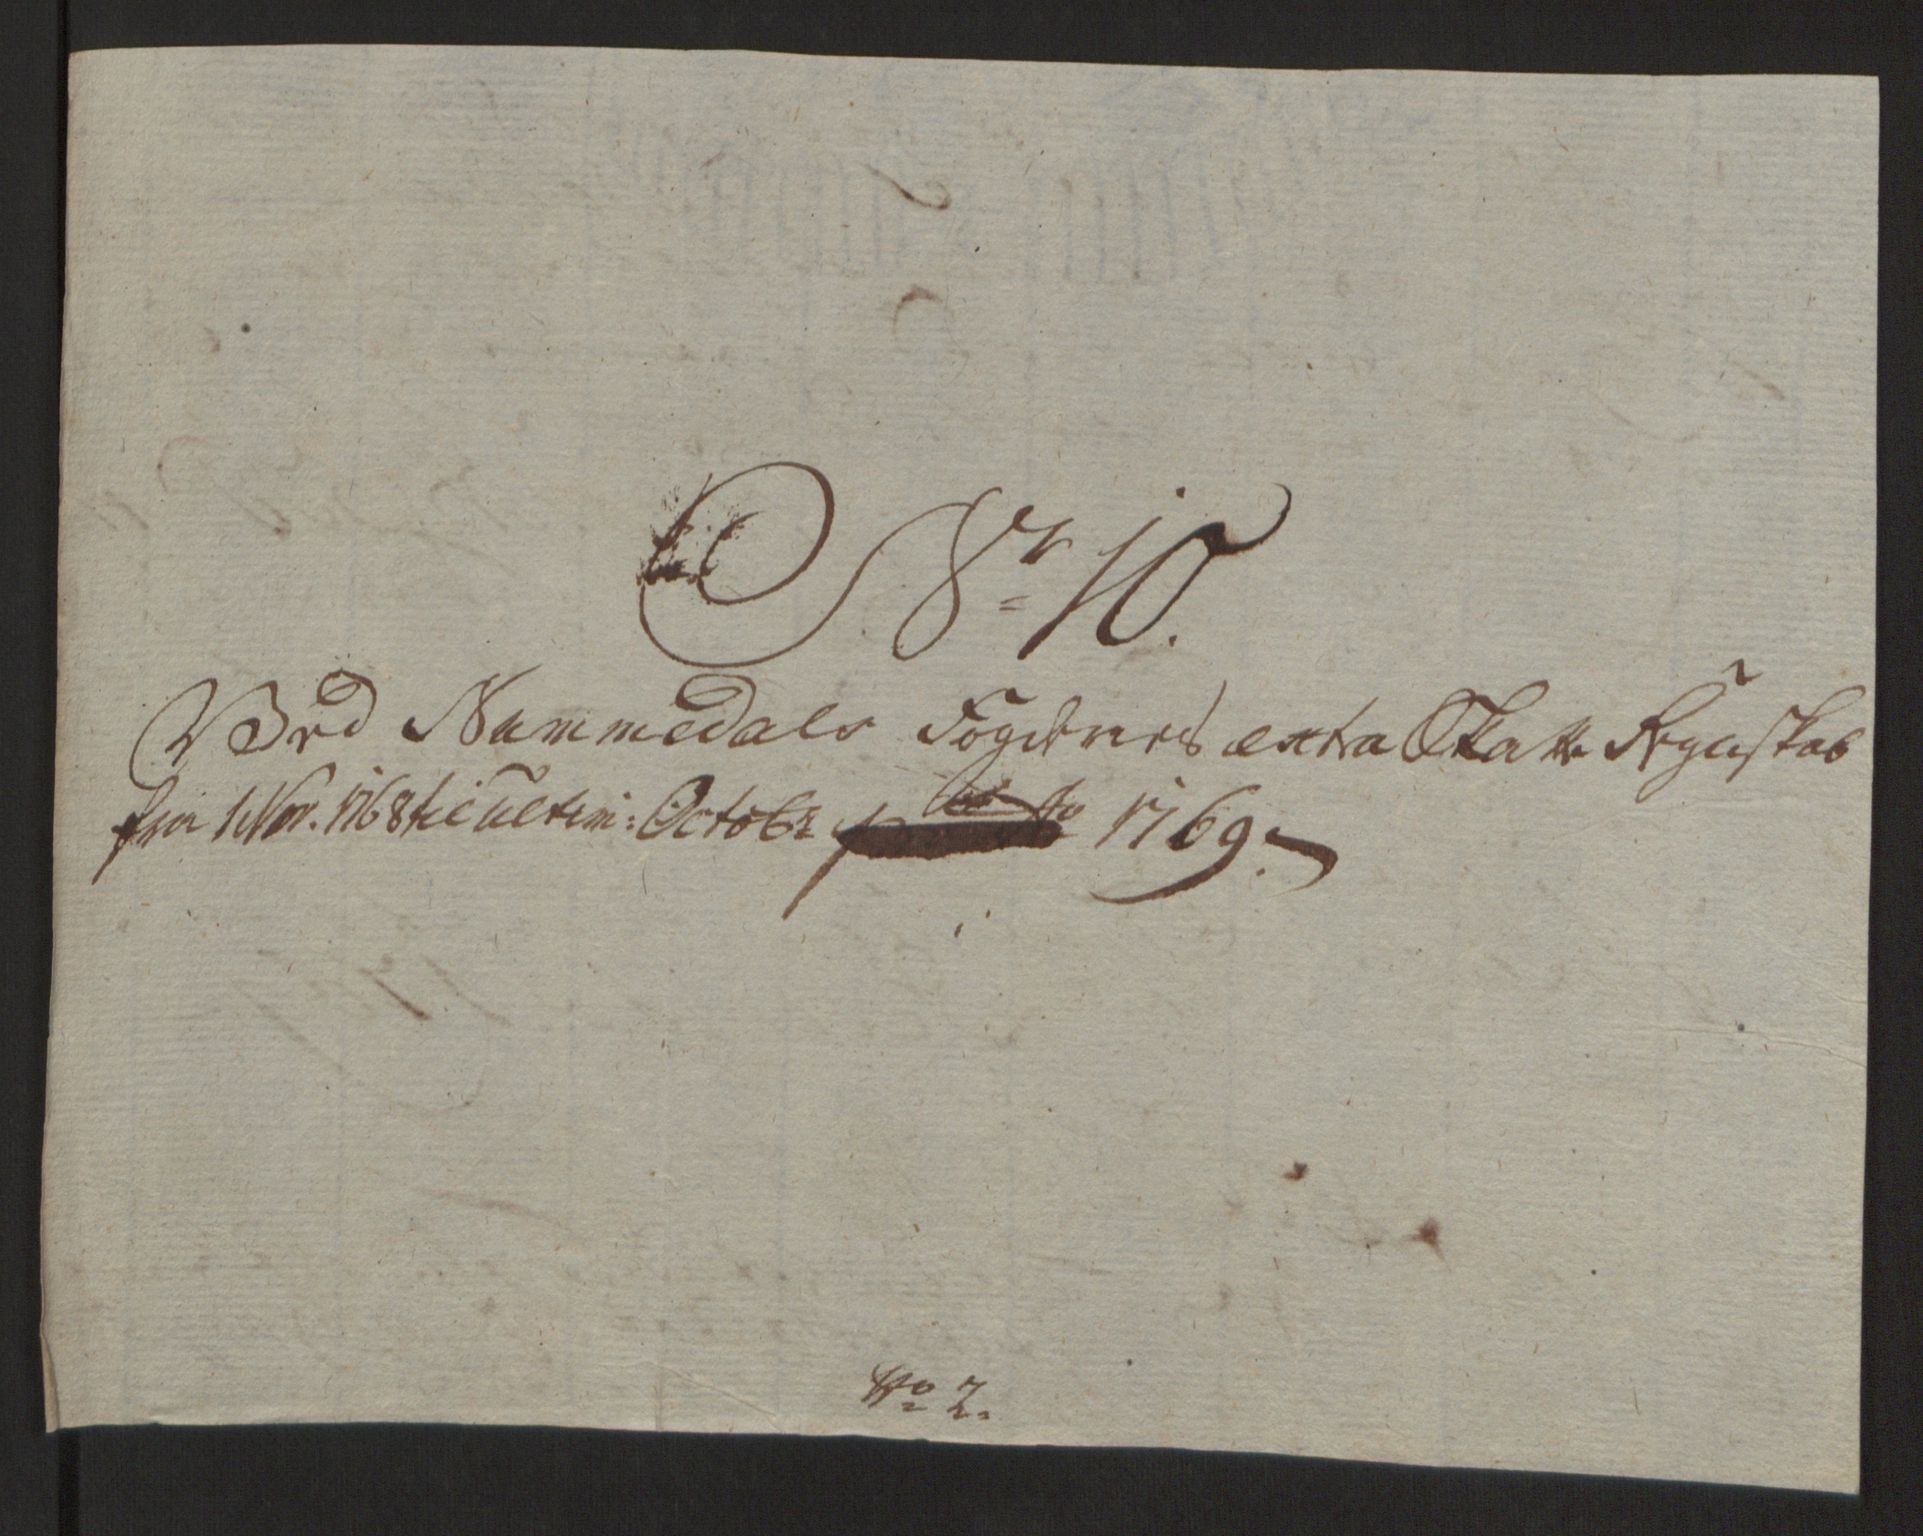 Nr 10.
Ved Nummedals Fogderies extra Skatte Regnskab
fra 1 Nov. 1768 til ultim: Octobr 1769.
No 2.